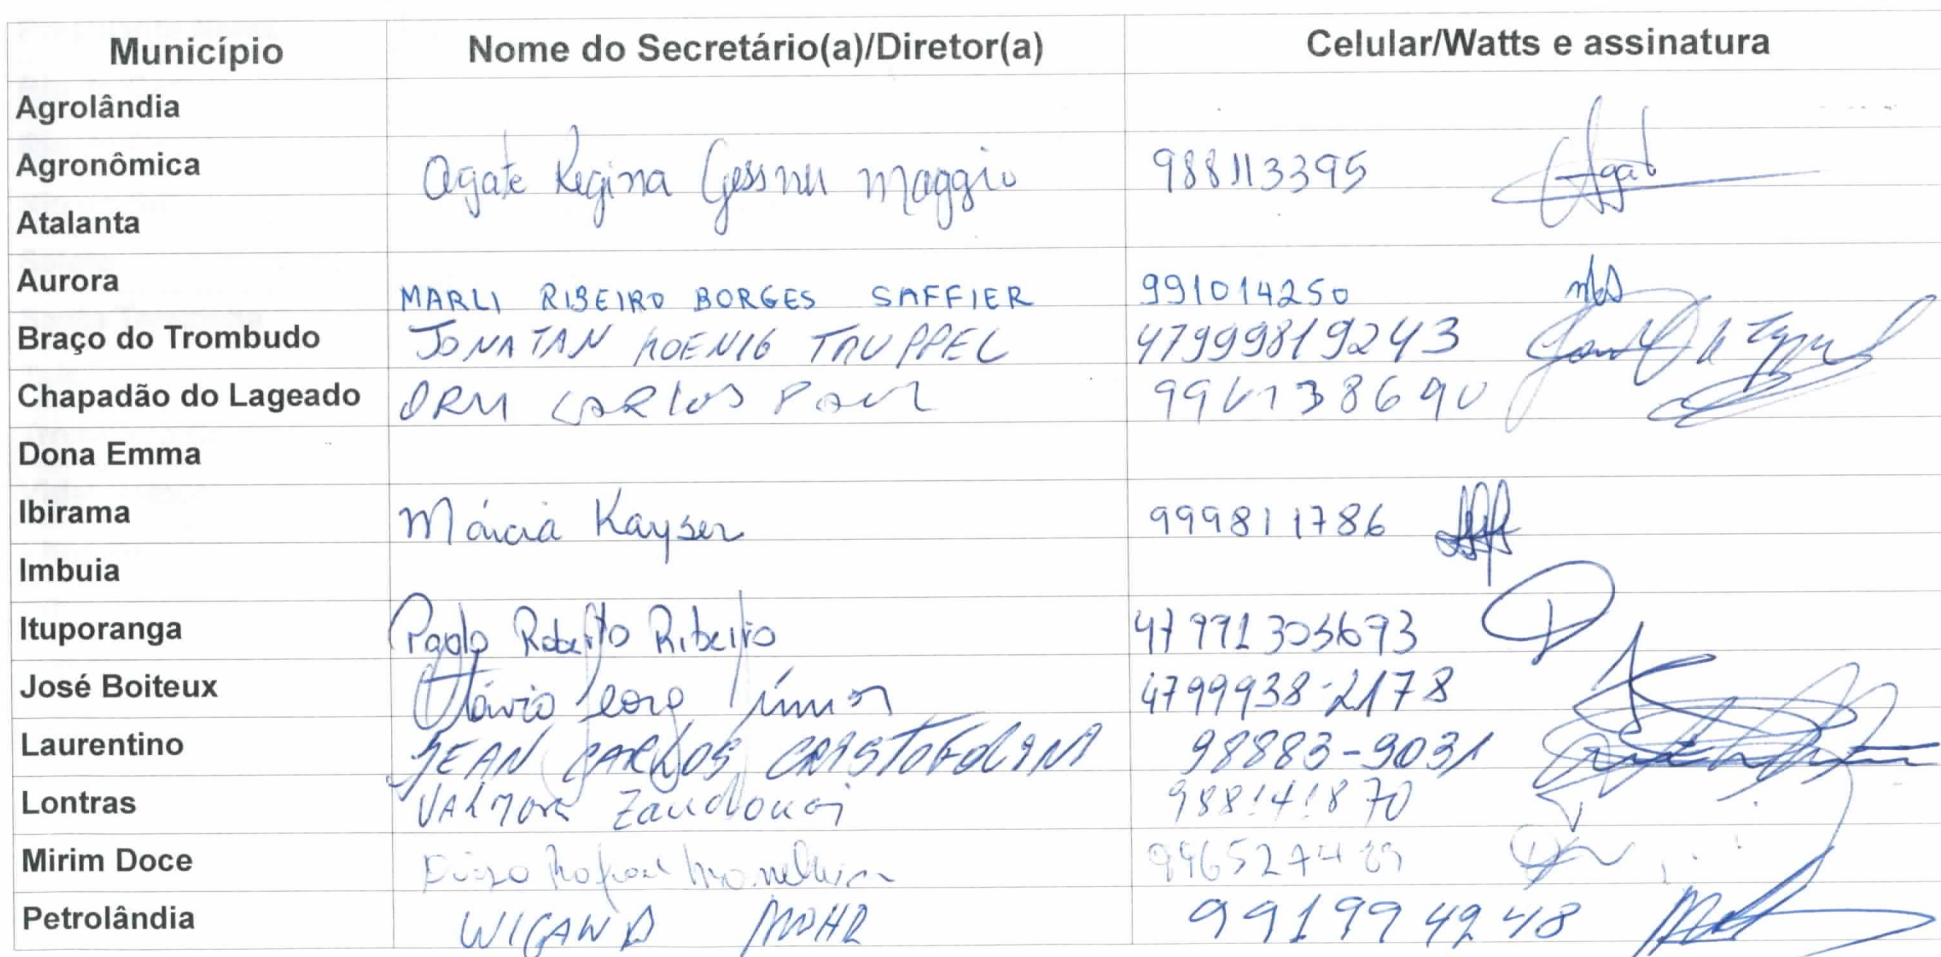 Município Nome do Secretário(a)/Diretor(a) Celular/Watts e assinatura
Agrolândia
Agronômica Agate Regina Gessner Maggio 988113395 Agat
Atalanta
Aurora MARLI RIBEIRO BORGES SAFFIER 991014250
Braço do Trombudo JONATAN KOENIG TRUPPEL 47999819243
Chapadão do Lageado CARLOS
Dona Emma
Ibirama Márcia Kayser 999811786
Imbuia
Ituporanga Paolo Roberto Ribeiro
José Boiteux Otávio 4799938-2178
Laurentino JEAN CARLOS CRISTOFOLINI 98883-9031
Lontras
Mirim Doce
Petrolândia WIGAND MOHR 991994248